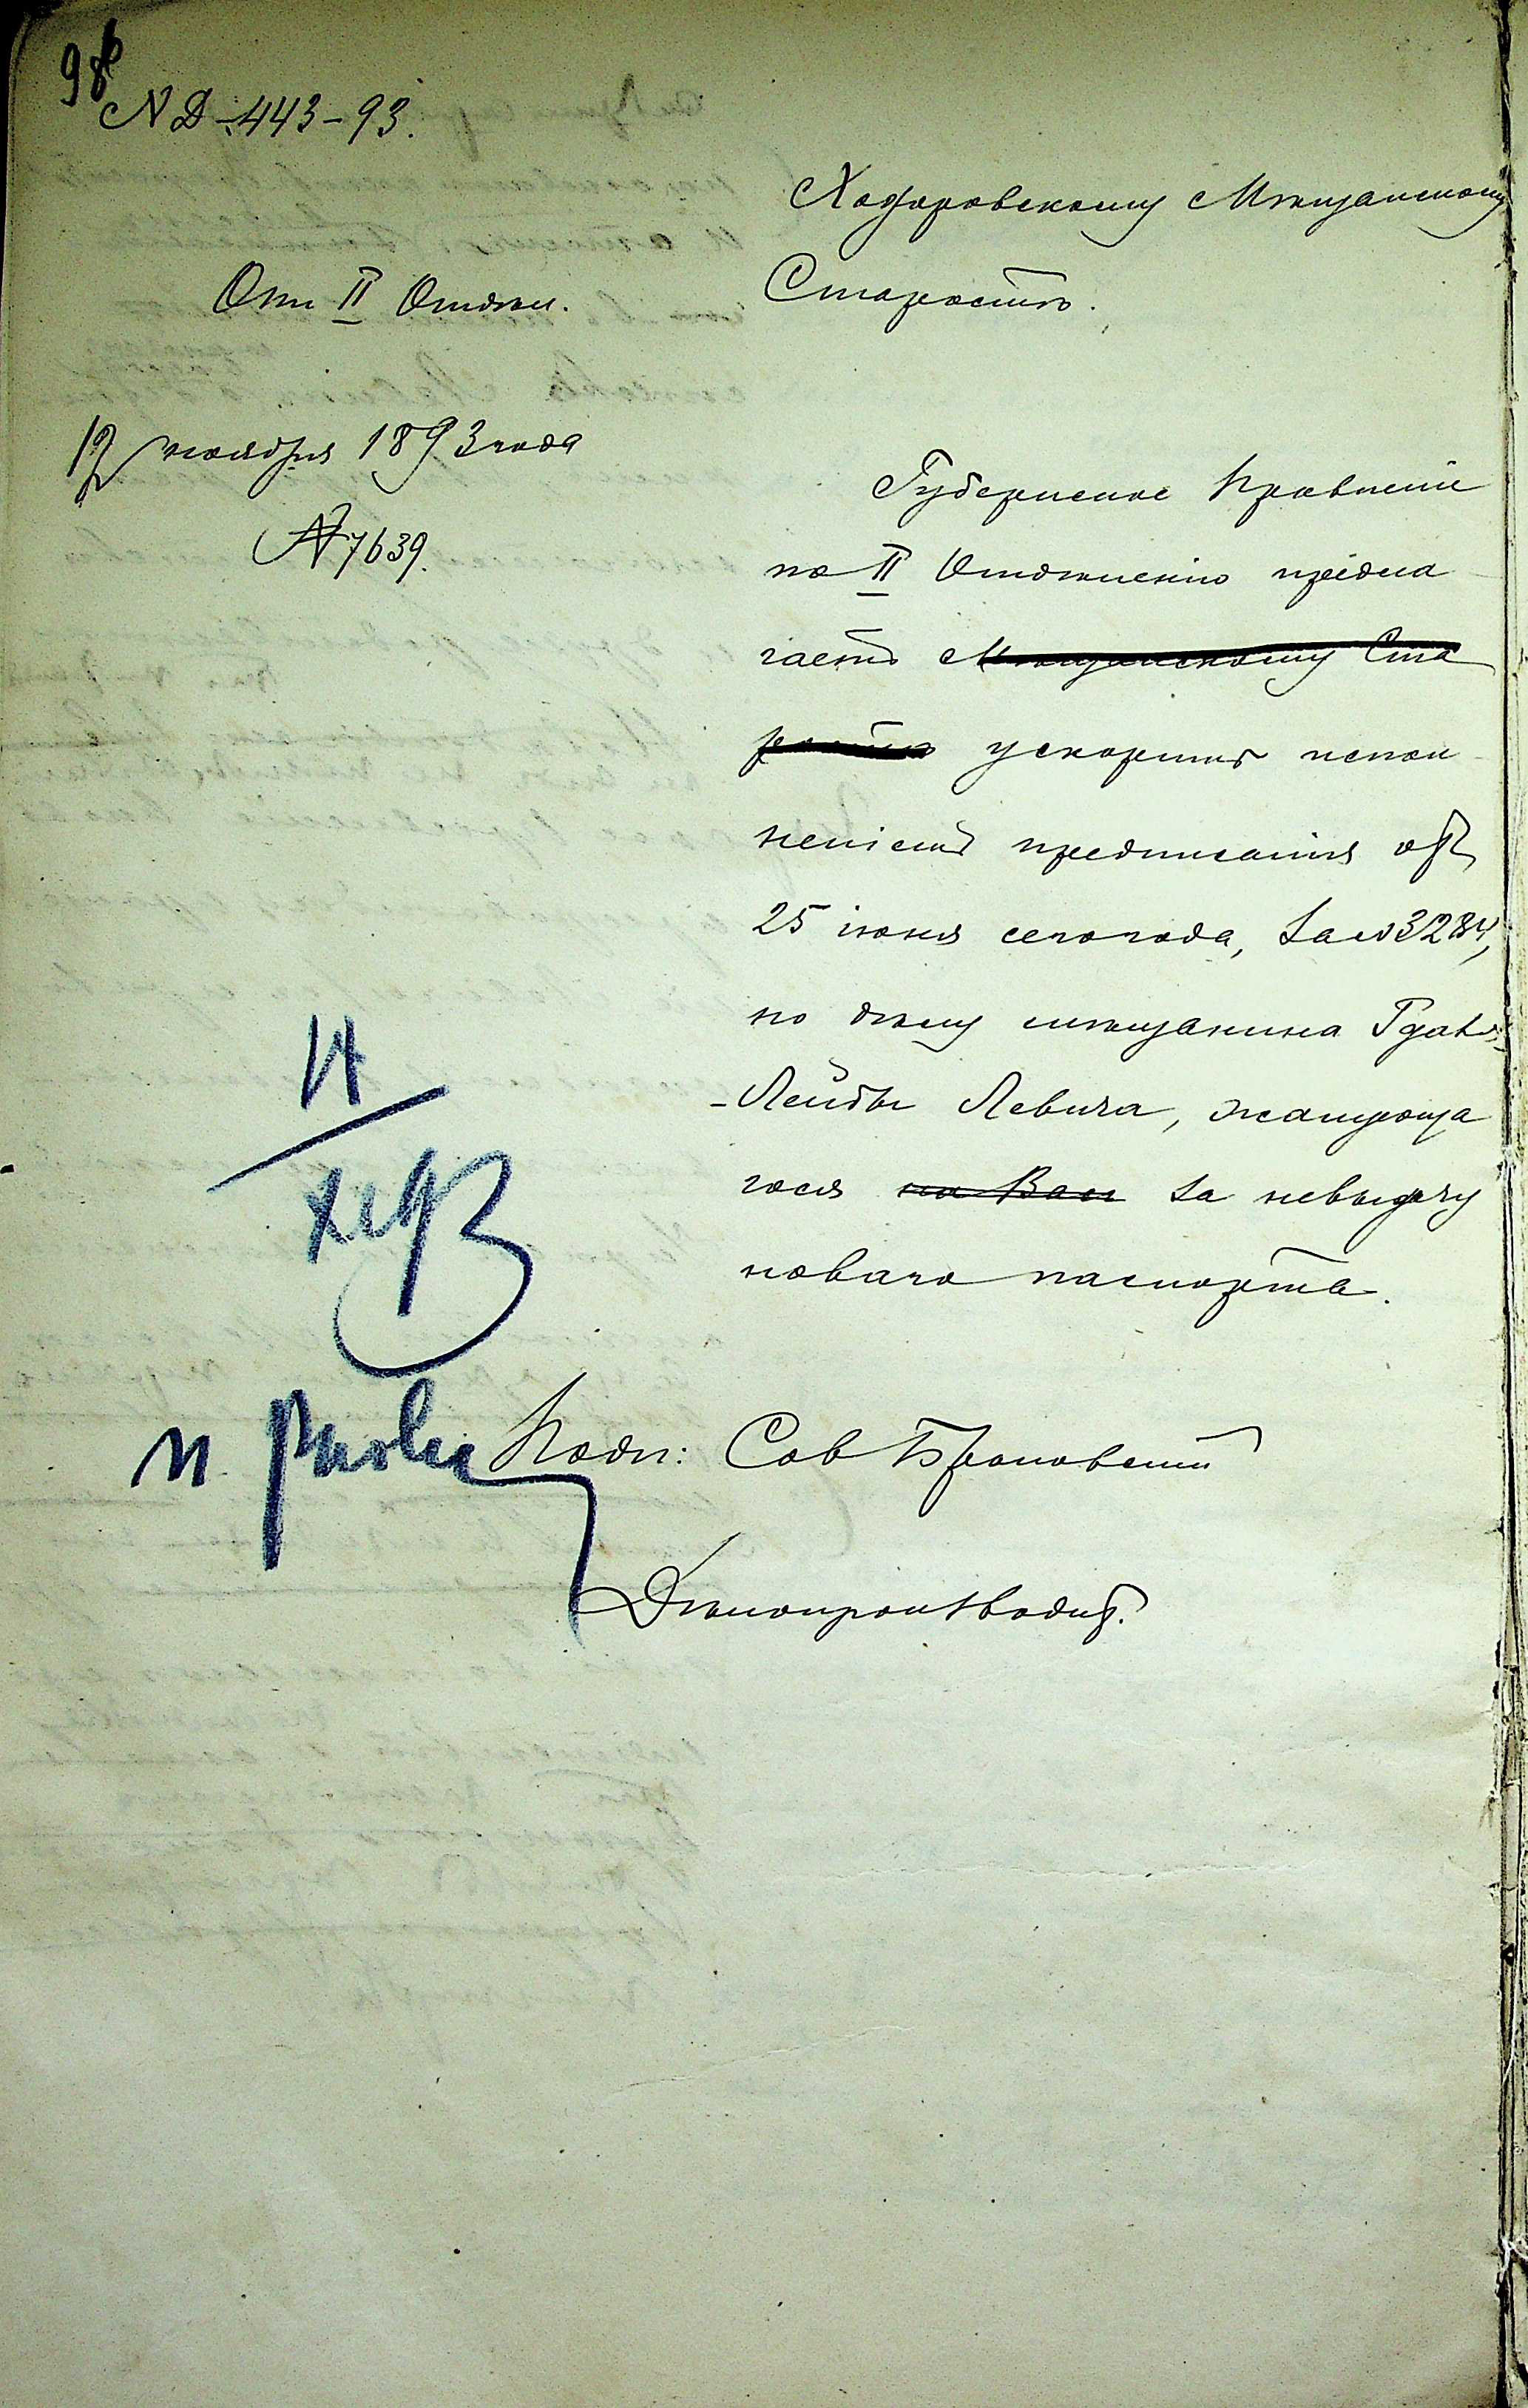 N Д-443-93.
Ходоровскому Мѣщанскому
Старостѣ.
От II Отдѣл.
12 ноября 1893 года
№ 7639.
Губернское Правленіе
по II Отдѣленію предла
гаетъ Мѣщанскому Ста
ростѣ ускорить испол
неніемъ предписанія отъ
25 іюня сего года, за №3284,
по дѣлу мѣщанина
-Лейбы Левича, жалующа
гося на Вас за невыдачу
новаго паспорта.
Подп: Сов Брановскій
Дѣлопроизводит.